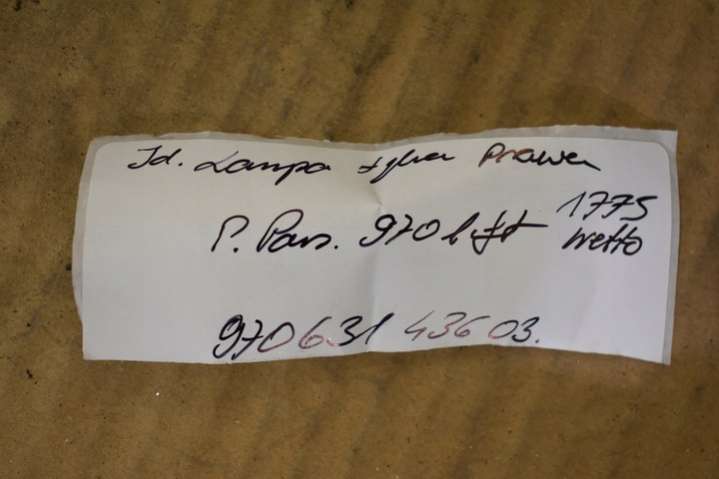 Id. Lampa tylna Prawa
P. Pan. 970 lift 1775
netto
970 631 436 03.